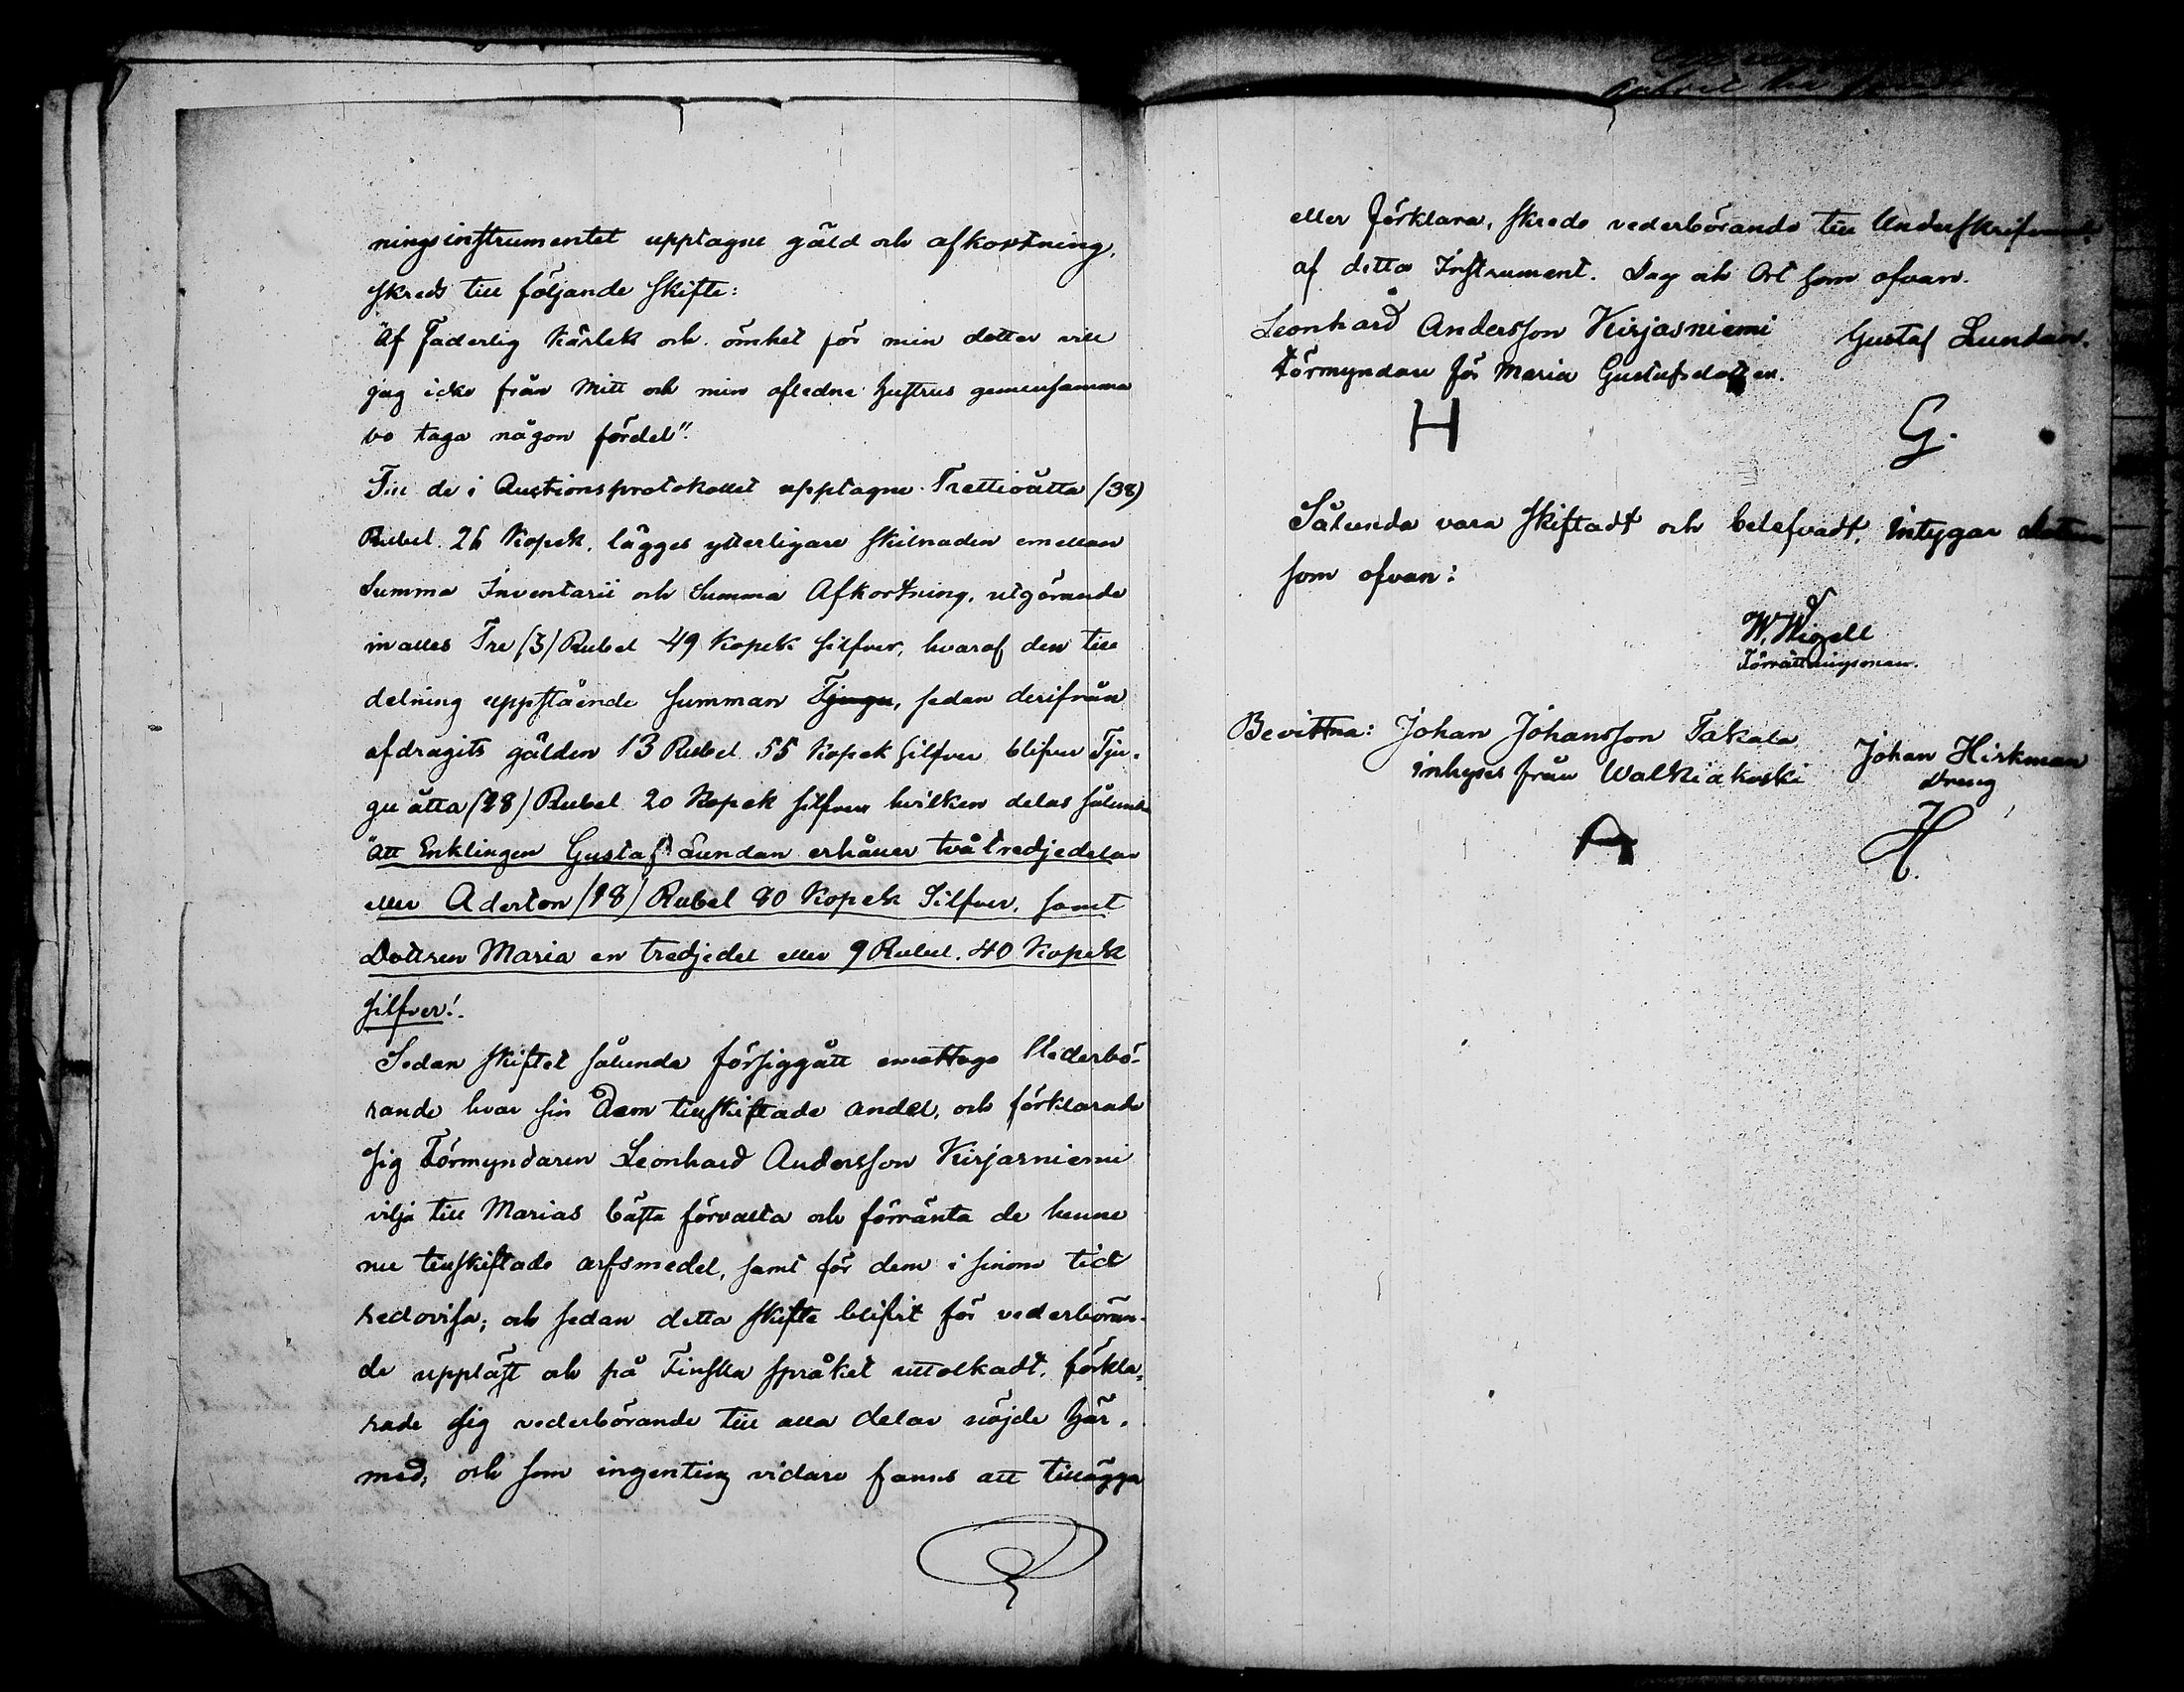 ningsinstrumentet upptagne gäld och afkortning,
skreds till följande skifte:
"Af Faderlig kärlek och ömhet för min dotter vill
jag icke från mitt och min afledne hustrus gemensamma
bo taga någon fördel".
Till de i Auctionsprotokollet upptagne Trettioåtta (38)
Rubel 26 Kopek, lägges ytterligare skilnaden emellan
Summa Inventarii och Summa Afkortning, utgörande
inalles Tre (3) Rubel 49 Kopek silfver, hvaraf den till
delning uppstående summan Tjugu, sedan derifrån
afdragits gälden 13 Rubel 55 Kopek silfver blifver Tju-
gu åtta (28) Rubel 20 Kopek silfver hvilken delas sålunda
"Att Enklingen Gustaf Lundan erhåller två tredjedelar
eller Aderton (18) Rubel 80 Kopek Silfver, samt
Dottren Maria en tredjedel eller 9 Rubel 40 Kopek
silfver!.
Sedan skiftet sålunda försiggått emottogo Vederbö-
rande hvar sin dem tillskiftade andel, och förklarade
sig Förmyndaren Leonhard Andersson Kirjasniemi
vilja till Marias bästa förvalta och förränta de henne
nu tillskiftade arfsmedel, samt för dem i sinom tid
redovisa; och sedan detta skifte blifvit för vederböran-
de uppläst och på Finska språket uttolkadt, förkla-
rade sig vederbörande till alla delar nöjde här-
med; och som ingenting vidare fanns att tillägga
eller förklara, skredo vederbörande till
af detta Instrument. Dag och Ort som ofvan.
Leonhard Andersson Kirjasniemi Gustaf Lundan.
Förmyndare för Maria Gustafsdotter.
H G.
Sålunda vara skiftadt och belefvadt, intygar
som ofvan:
W. Wigell
Förrättningsman.
Bevittna: Johan Johansson Takala Johan Hirkman
inhyses från Walkiakoski dreng
A H.